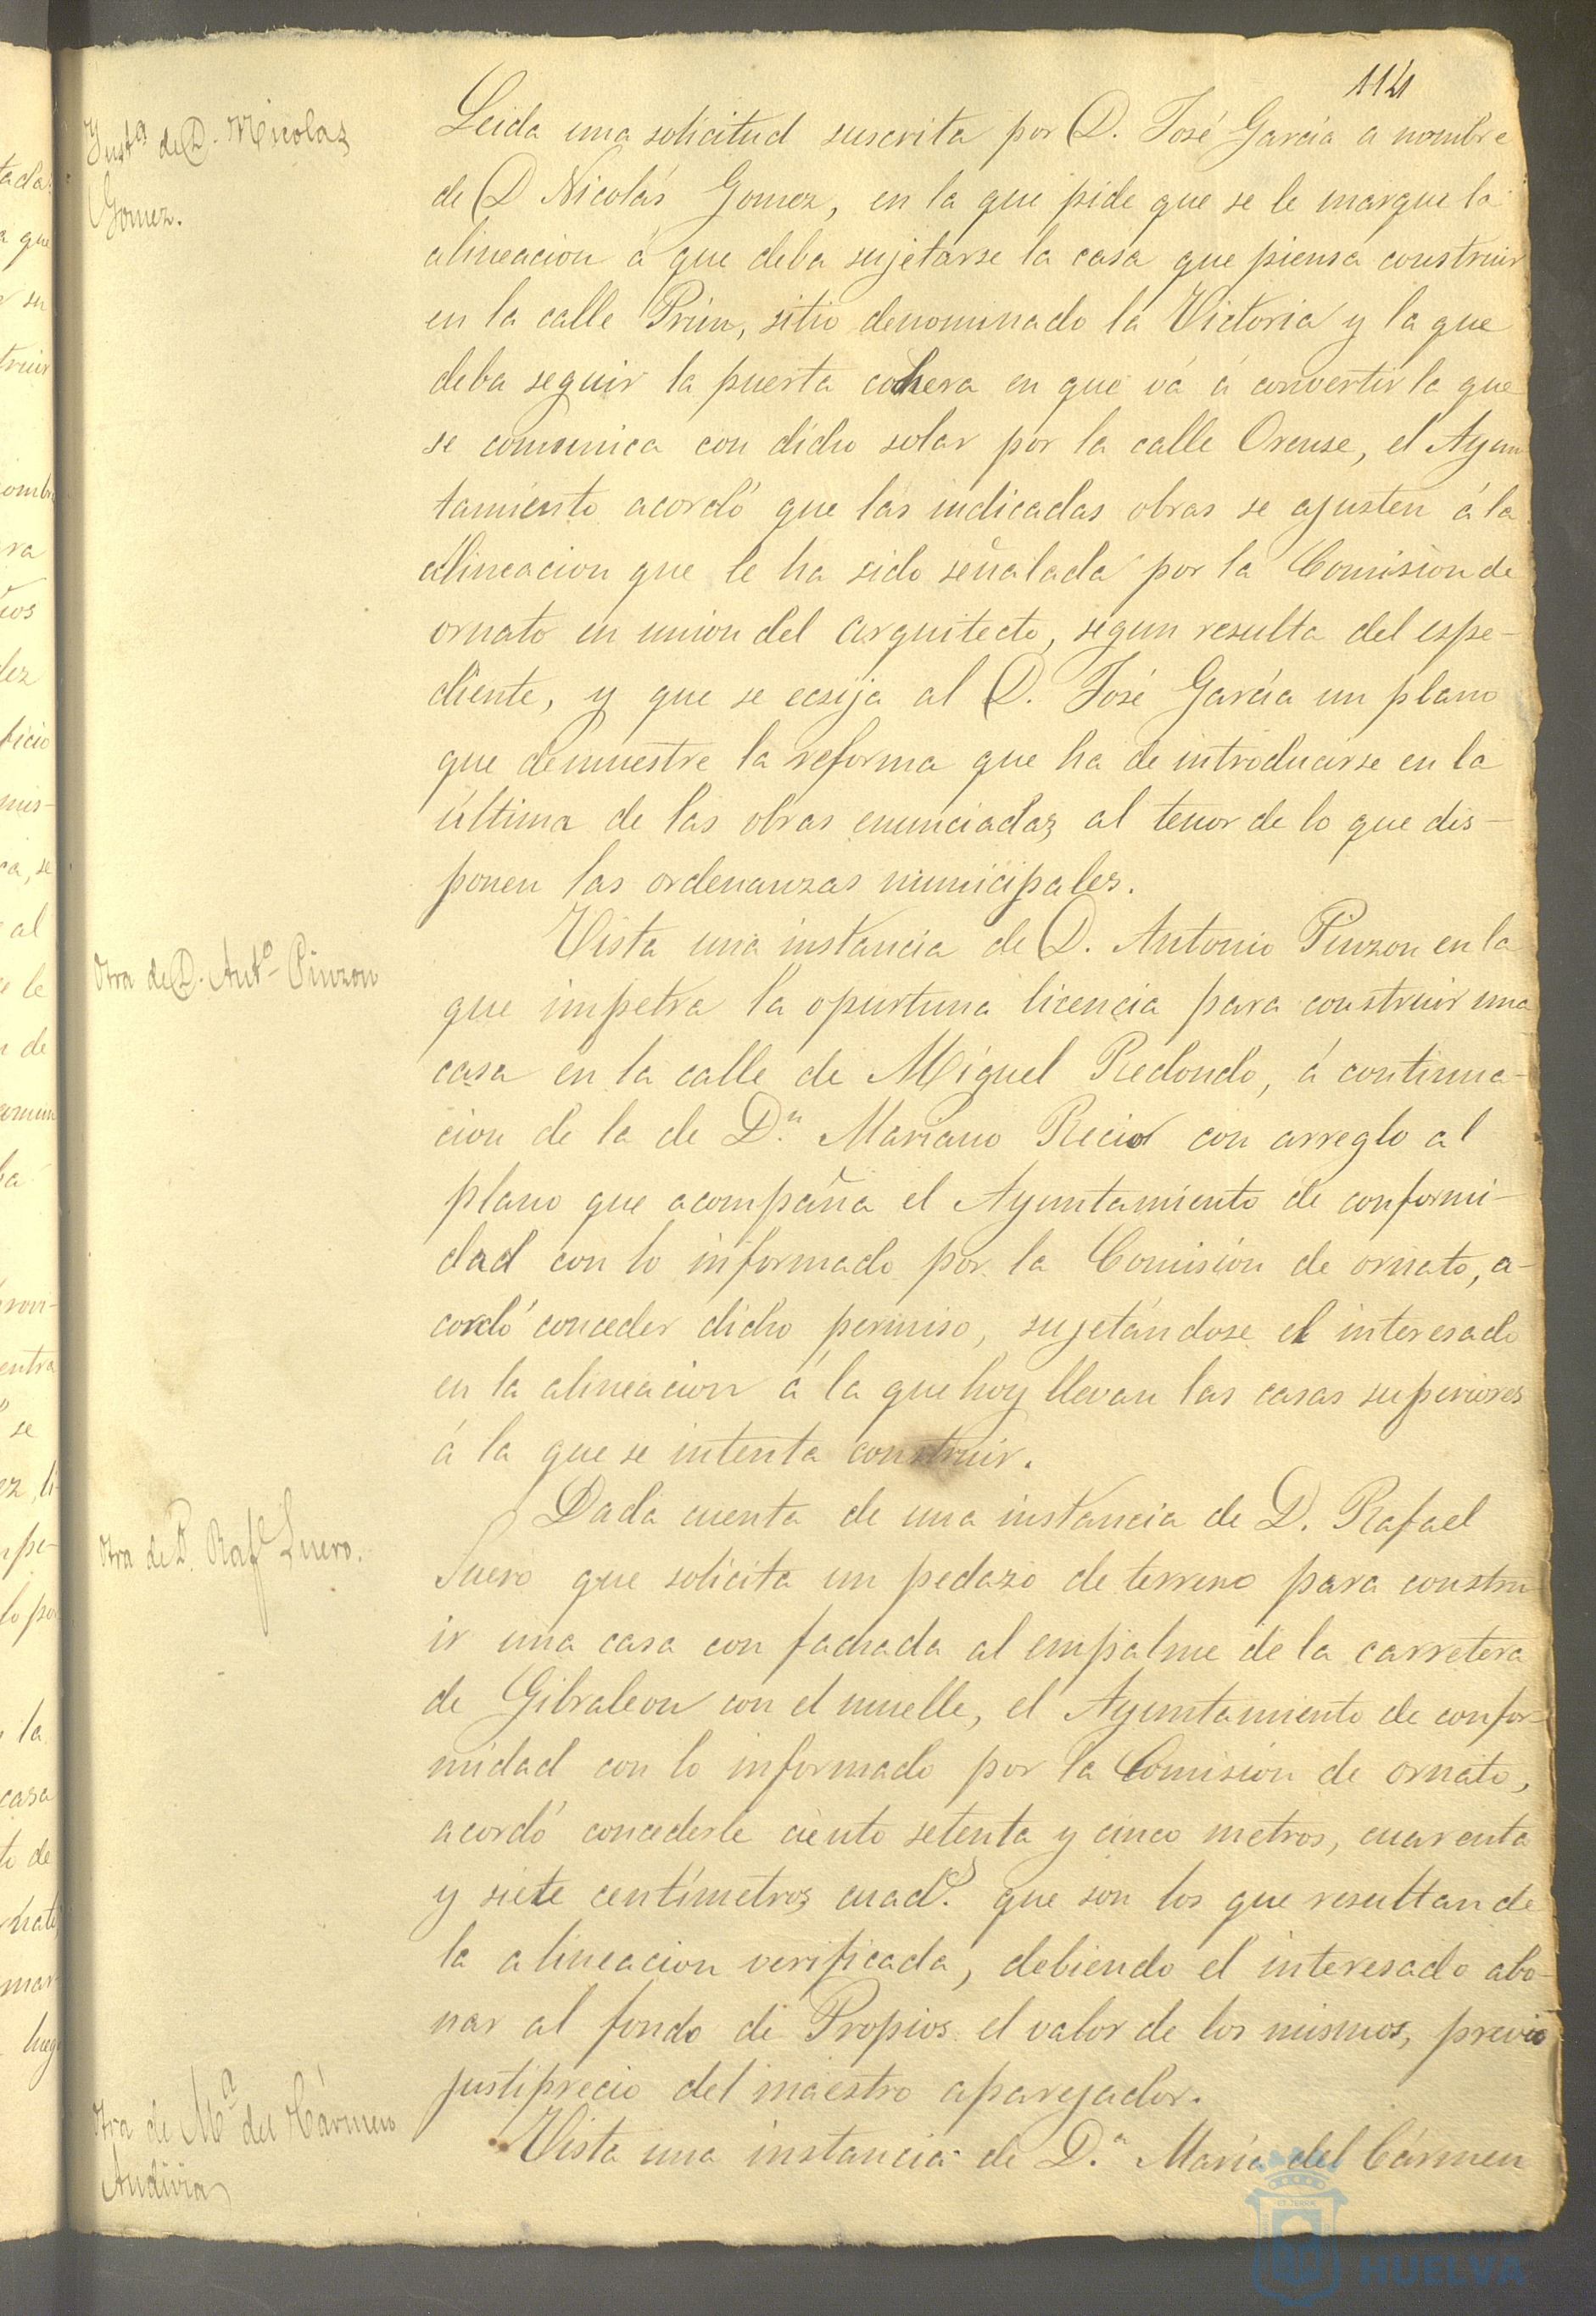 114
Inst.ª de D. Nicolas
Gomez.
Leida una solicitud suscrita por D. José García a nombre
de D Nicolás Gomez, en la que pide que se le marque la
alineacion á que deba sujetarse la casa que piensa construir
en la calle Prim, sitio denominado la Victoria y la que
deba seguir la puerta cochera en que vá á convertir la que
se comunica con dicho solar por la calle Orense, el Ayun
tamiento acordó que las indicadas obras se ajusten á la
alineacion que le ha sido señalada por la Comision de
ornato en union del arquitecto, segun resulta del espe-
diente, y que se ecsija al D. José García un plano
que demuestre la reforma que ha de introducirse en la
última de las obras enunciadas, al tenor de lo que dis-
ponen las ordenanzas municipales.
Otra de D. Ant.º Pinzon
Vista una instancia de D. Antonio Pinzon en la
que impetra la opurtuna licencia para construir una
casa en la calle de Miguel Redondo, á continua-
cion de la de D.n Mariano Recio con arreglo al
plano que acompaña el Ayuntamiento de conformi-
dad con lo informado por la Comisión de ornato, a-
cordó conceder dicho permiso, sujetándose el interesado
en la alineacion á la que hoy llevan las casas superiores
á la que se intenta construir.
Otra de D. Raf.l Suero.
Dada cuenta de una instancia de D. Rafael
Suero que solicita un pedazo de terreno para constru
ir una casa con fachada al empalme de la carretera
de Gibraleon con el muelle, el Ayuntamiento de confor-
midad con lo informado por la Comisión de ornato,
acordó concederle ciento setenta y cinco metros, cuarenta
y siete centímetros cuad.s que son los que resultan de
la alineacion verificada, debiendo el interesado abo-
nar al fondo de Propios el valor de los mismos, previo
justiprecio del maestro aparejador.
Otra de M.ª del Cármen
Andivia
Vista una instancia de D.ª María del Cármen
HUELVA